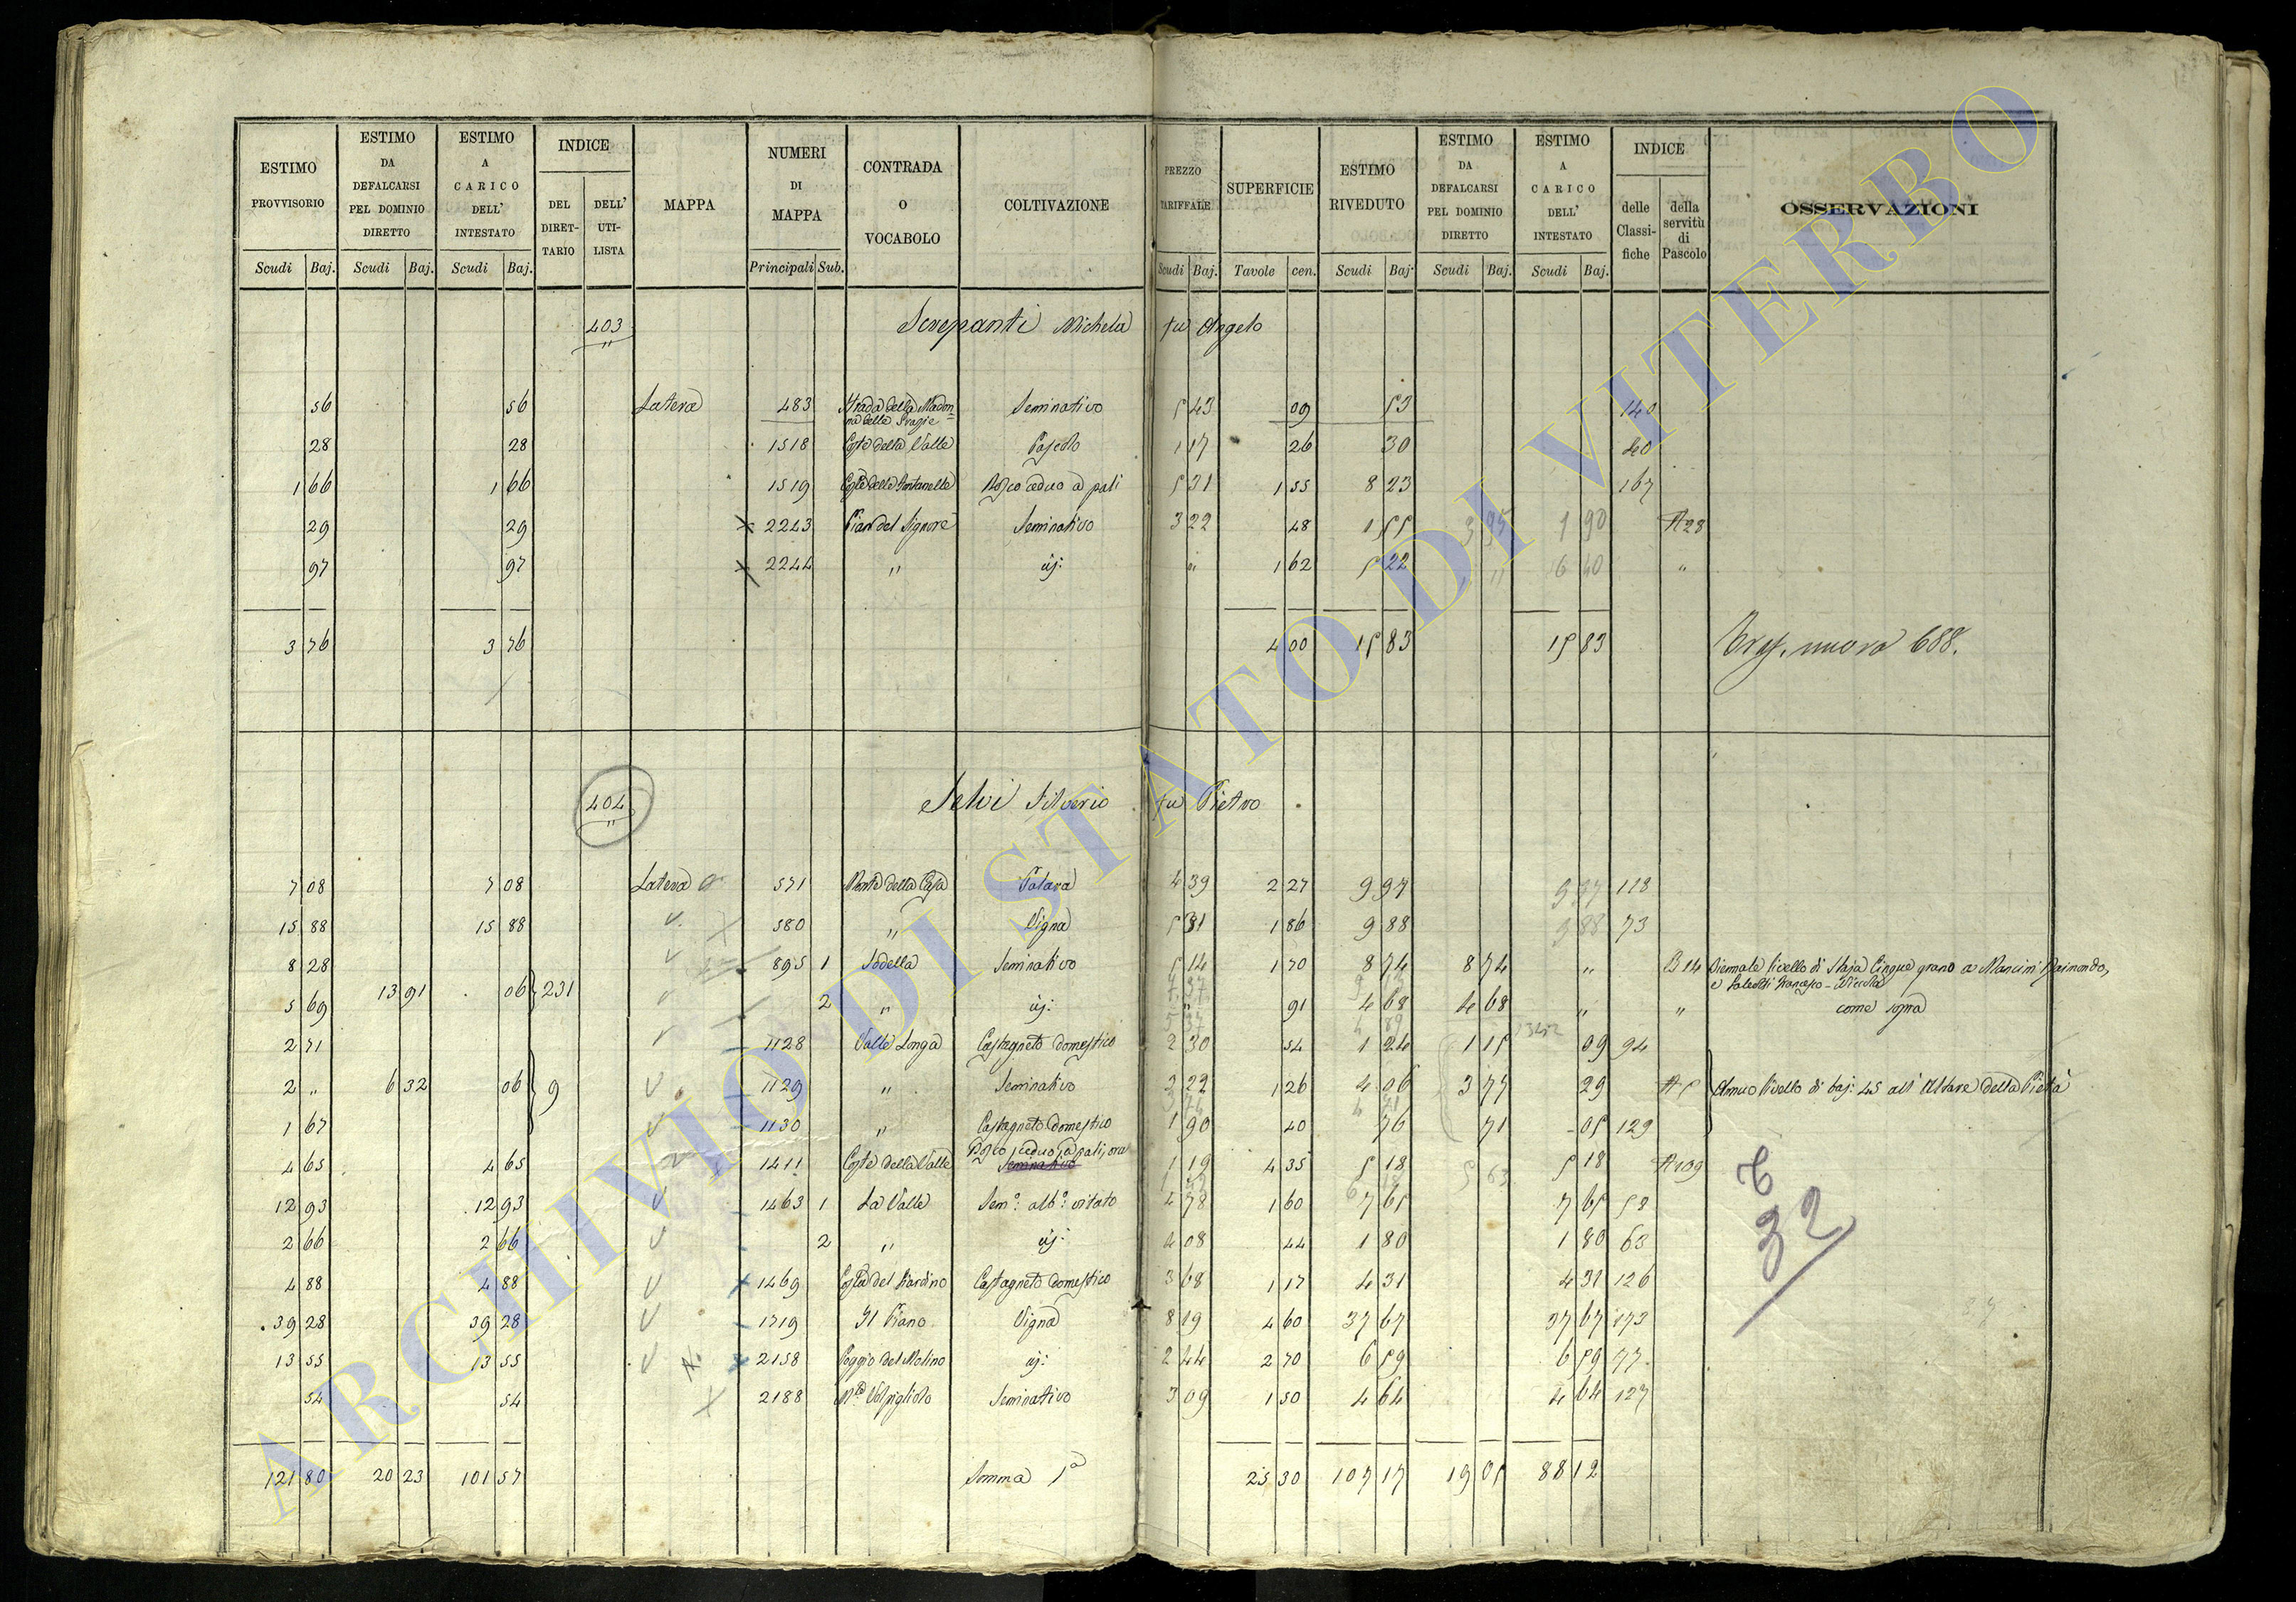 ESTIMO PROVVISORIO | ESTIMO DA DEFALCARSI PEL DOMINIO DIRETTO | ESTIMO A CARICO DELL' INTESTATO | INDICE | MAPPA | NUMERI DI MAPPA | CONTRADA O VOCABOLO | COLTIVAZIONE | PREZZO TARIFFALE | SUPERFICIE | ESTIMO RIVEDUTO | ESTIMO DA DEFALCARSI PEL DOMINIO DIRETTO | ESTIMO A CARICO DELL' INTESTATO | INDICE | OSSERVAZIONI
DEL DIRET-TARIO | DELL' UTI-LISTA | delle Classi-fiche | della servitù di Pascolo
Scudi | Baj. | Scudi | Baj. | Scudi | Baj. | Principali | Sub. | Scudi | Baj. | Tavole | cen. | Scudi | Baj. | Scudi | Baj. | Scudi | Baj.
403 " Screpanti Michela fu Angelo
56 | 56 | Latera | 483 | Strada della Madonna delle Grazie | Seminativo | 5 43 | 09 | 53 | 140
28 | 28 | 1518 | Coste della Valle | Pascolo | 1 17 | 26 | 30 | 40
1 66 | 1 66 | 1519 | Coste delle Fontanelle | Bosco ceduo a pali | 5 31 | 1 55 | 8 23 | 167
29 | 29 | 2243 | Pian del Signore | Seminativo | 3 22 | 48 | 1 55 | 1 90 | A 28
97 | 97 | 2244 | " | sij: | " | 1 62 | 5 22 | 6 40 | "
3 76 | 3 76 | 4 00 | 15 83 | 15 83 | nuova 688.
404 " Selvi Silverio fu Pietro
7 08 | 7 08 | Latera | 571 | Monte della Casa | 4 39 | 2 27 | 9 97 | 9 97 | 118
15 88 | 15 88 | 580 | " | Vigna | 5 31 | 1 86 | 9 88 | 9 88 | 73
8 28 | 895 | 1 | Sodella | Seminativo | 5 14 | 1 70 | 8 74 | 8 74 | " | B 14 | Biennale livello di Staja Cinque grano a Mancini Raimondo,
13 91 | 06 | 231
5 69 | 2 | " | sij: | " | 91 | 4 68 | 4 68 | " | " | come sopra
2 71 | 1128 | Valle Longa | Castagneto domestico | 2 30 | 54 | 1 24 | 1 15 | 09 | 94
2 " | 6 32 | 06 | 9 | 1129 | " | Seminativo | 3 22 | 1 26 | 4 06 | 3 77 | 29 | A 5 | Annuo livello di baj: 45 all' Altare della Pietà
1 67 | 1130 | " | Castagneto domestico | 1 90 | 40 | 76 | 71 | 05 | 129
4 65 | 4 65 | 1411 | Coste della Valle | Bosco ceduo a pali, ora Seminativo | 1 19 | 4 35 | 5 18 | 5 18 | A 109
12 93 | 12 93 | 1463 | 1 | La Valle | Sem.° alb.° vitato | 4 78 | 1 60 | 7 65 | 7 65 | 58
2 66 | 2 66 | 2 | " | sij: | 4 08 | 44 | 1 80 | 1 80 | 63
4 88 | 4 88 | 1469 | Costa del Giardino | Castagneto domestico | 3 68 | 1 17 | 4 31 | 4 31 | 126
39 28 | 39 28 | 1719 | Il Piano | Vigna | 8 19 | 4 60 | 37 67 | 37 67 | 173
13 55 | 13 55 | 2158 | Poggio del Molino | sij: | 2 44 | 2 70 | 6 59 | 6 59 | 77
54 | 54 | 2188 | Seminativo | 3 09 | 1 50 | 4 64 | 4 64 | 127
32
121 80 | 20 23 | 101 57 | Somma 1ª | 25 30 | 107 17 | 19 05 | 88 12
ARCHIVIO DI STATO DI VITERBO